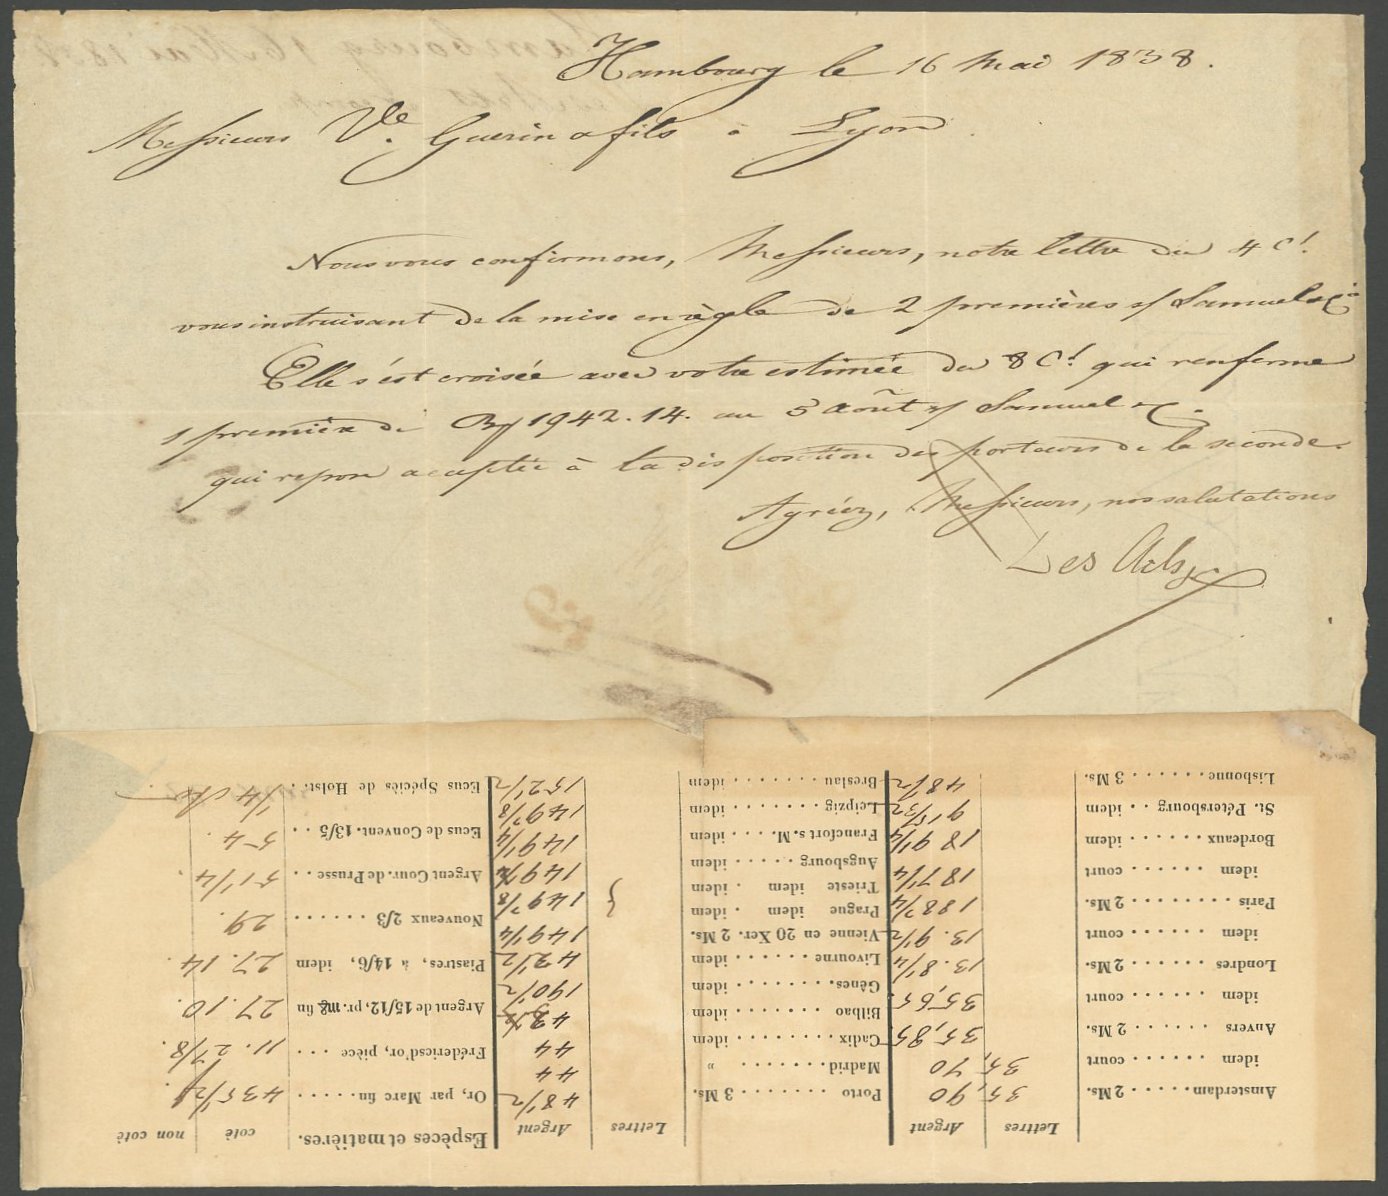 Hambourg le 16 Mai 1838.
Messieurs Ve. Guerin & fils à Lyon.
Nous vous confirmons, Messieurs, notre lettre du 4 Ct.
vous instruisant de la mise en règle de 2 premières s/ Samuel & Co
Elle s'est croisée avec votre estimée du 8 Ct. qui renferme
1 première de 1942.14. au 5 Août s/ Samuel & C.
qui repose acceptée à la disposition des porteurs de la seconde.
Agréez, Messieurs, nos salutations
Lettres Argent Lettres Argent Espèces et matières. coté non coté
Amsterdam . . . . . . 2 Ms. 35,90 Porto . . . . . . . . 3 Ms. 48 1/2 Or, par Marc fin . . . . . 435 1/2
idem . . . . . . court 35,70 Madrid . . . . . . . „ 44 Fréderics d'or, pièce . . . 11.27/8.
Anvers . . . . . . . 2 Ms. 35,85 Cadix . . . . . . . . idem 44 Argent de 15f12, pr. mg fin 27.10
idem . . . . . . court 35,65. Bilbao . . . . . . . . idem Piastres, à 14f6, idem 27.14.
Londres . . . . . . . 2 Ms. 13.8 1/4 Gênes. . . . . . . . idem 190 1/2 Nouveaux 2/3 . . . . . . 29.
idem . . . . . . court 13.9 1/2 Livourne . . . . . . . idem 42 1/2 Argent Cour. de Prusse . . 51 1/4
Paris . . . . . . . . 2 Ms. Vienne en 20 Xer. 2 Ms. 149 1/4 Ecus de Convent. 13f5 . . 54.
idem . . . . . . court 187 1/4 Prague idem . idem 149 7/8 Ecus Spéciès de Holst. . .
Bordeaux . . . . . . idem 189 1/4 Trieste idem . idem
St. Pétersbourg . . idem 9 15/32 Augsbourg . . . . . . idem
Lisbonne . . . . . . 3 Ms. 48 1/2 Francfort s. M. . . . idem 149 1/4
Leipzig . . . . . . . idem 149 7/8
Breslau . . . . . . . . idem 152 1/2